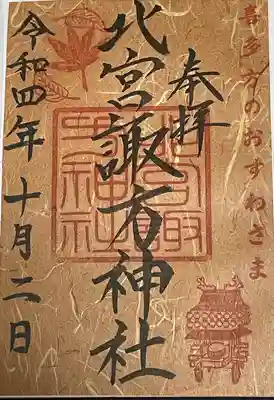 喜多方のおすわさま
奉拝
北宮諏方神社
令和四年十月二日